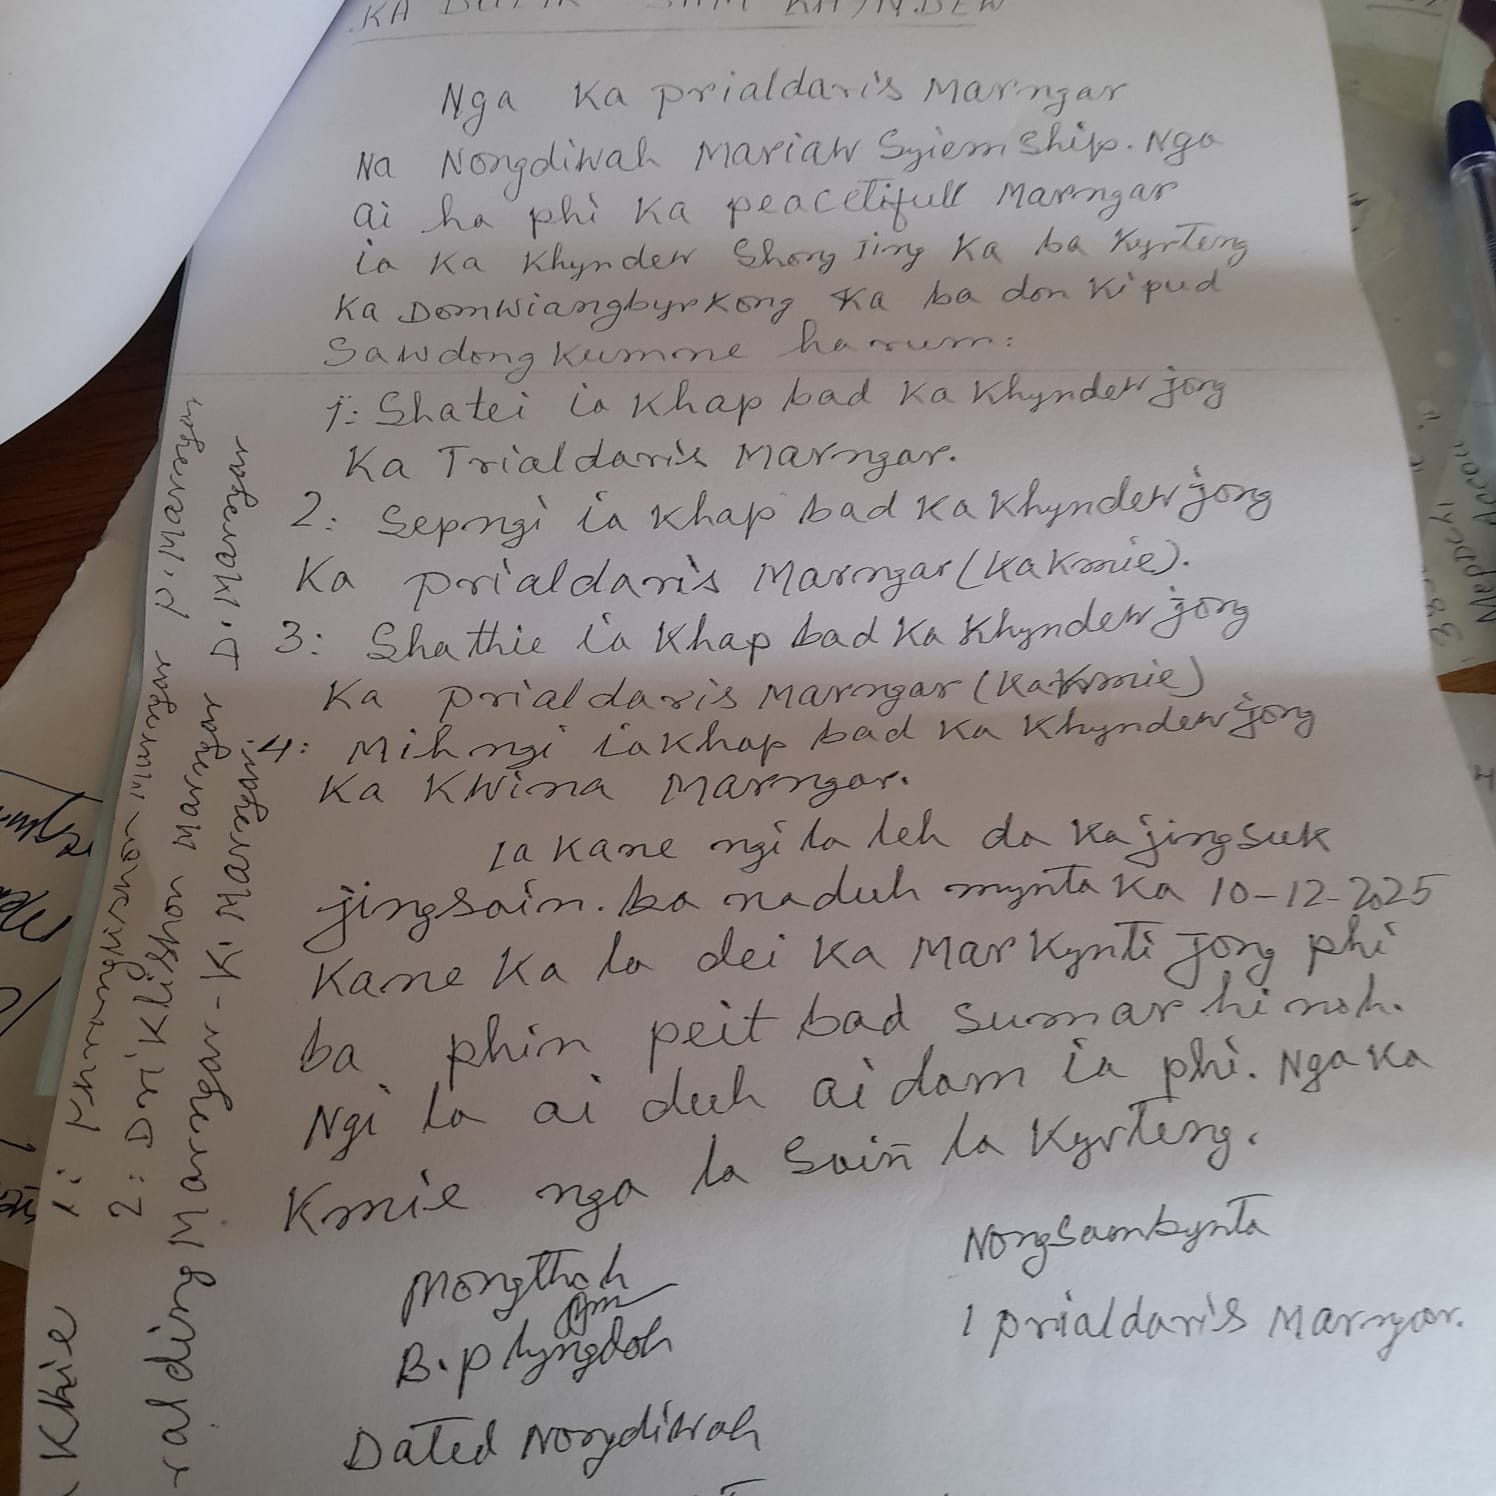 KA DULIR SAM KHYNDEW
Nga Ka prialdaris Marngar
Na Nongdiwah Mariaw Syiem Ship. Nga
ai ha phi Ka peacetifull Marngar
ia Ka Khyndew Shong Ting Ka ba Kyrteng
Ka Domwiangbyrkong Ka ba don Ki pud
Sawdong Kumne harum:
1: Shatei ia Khap bad Ka Khyndew jong
Ka Trialdaris Marngar.
2: Sepngi ia Khap bad Ka Khyndew jong
Ka prialdaris Marngar (Ka Kmie).
3: Shathie ia Khap bad Ka Khyndew jong
Ka prialdaris Marngar (Ka Kmie)
4: Mihngi ia Khap bad Ka Khyndew jong
Ka Kwina Marngar.
Ia Kane ngi la leh da Ka jingsuk
jingsain. ba naduh mynta Ka 10-12-2025
Kane Ka la dei Ka Mar Kynti jong phi
ba phin peit bad sumar hi noh.
Ngi la ai duh ai dam ia phi. Nga Ka
Kmie nga la Soiñ la Kyrteng.
Mongthoh
B.p lyngdoh
Dated Nongdiwah
Nongsambynta
1 prialdaris Marngar.
Khie
1: Khrawnglishon Marngar P. Marngar
2: Dri Klishon Marngar D. Marngar
ralding Marngar - K. Marngar